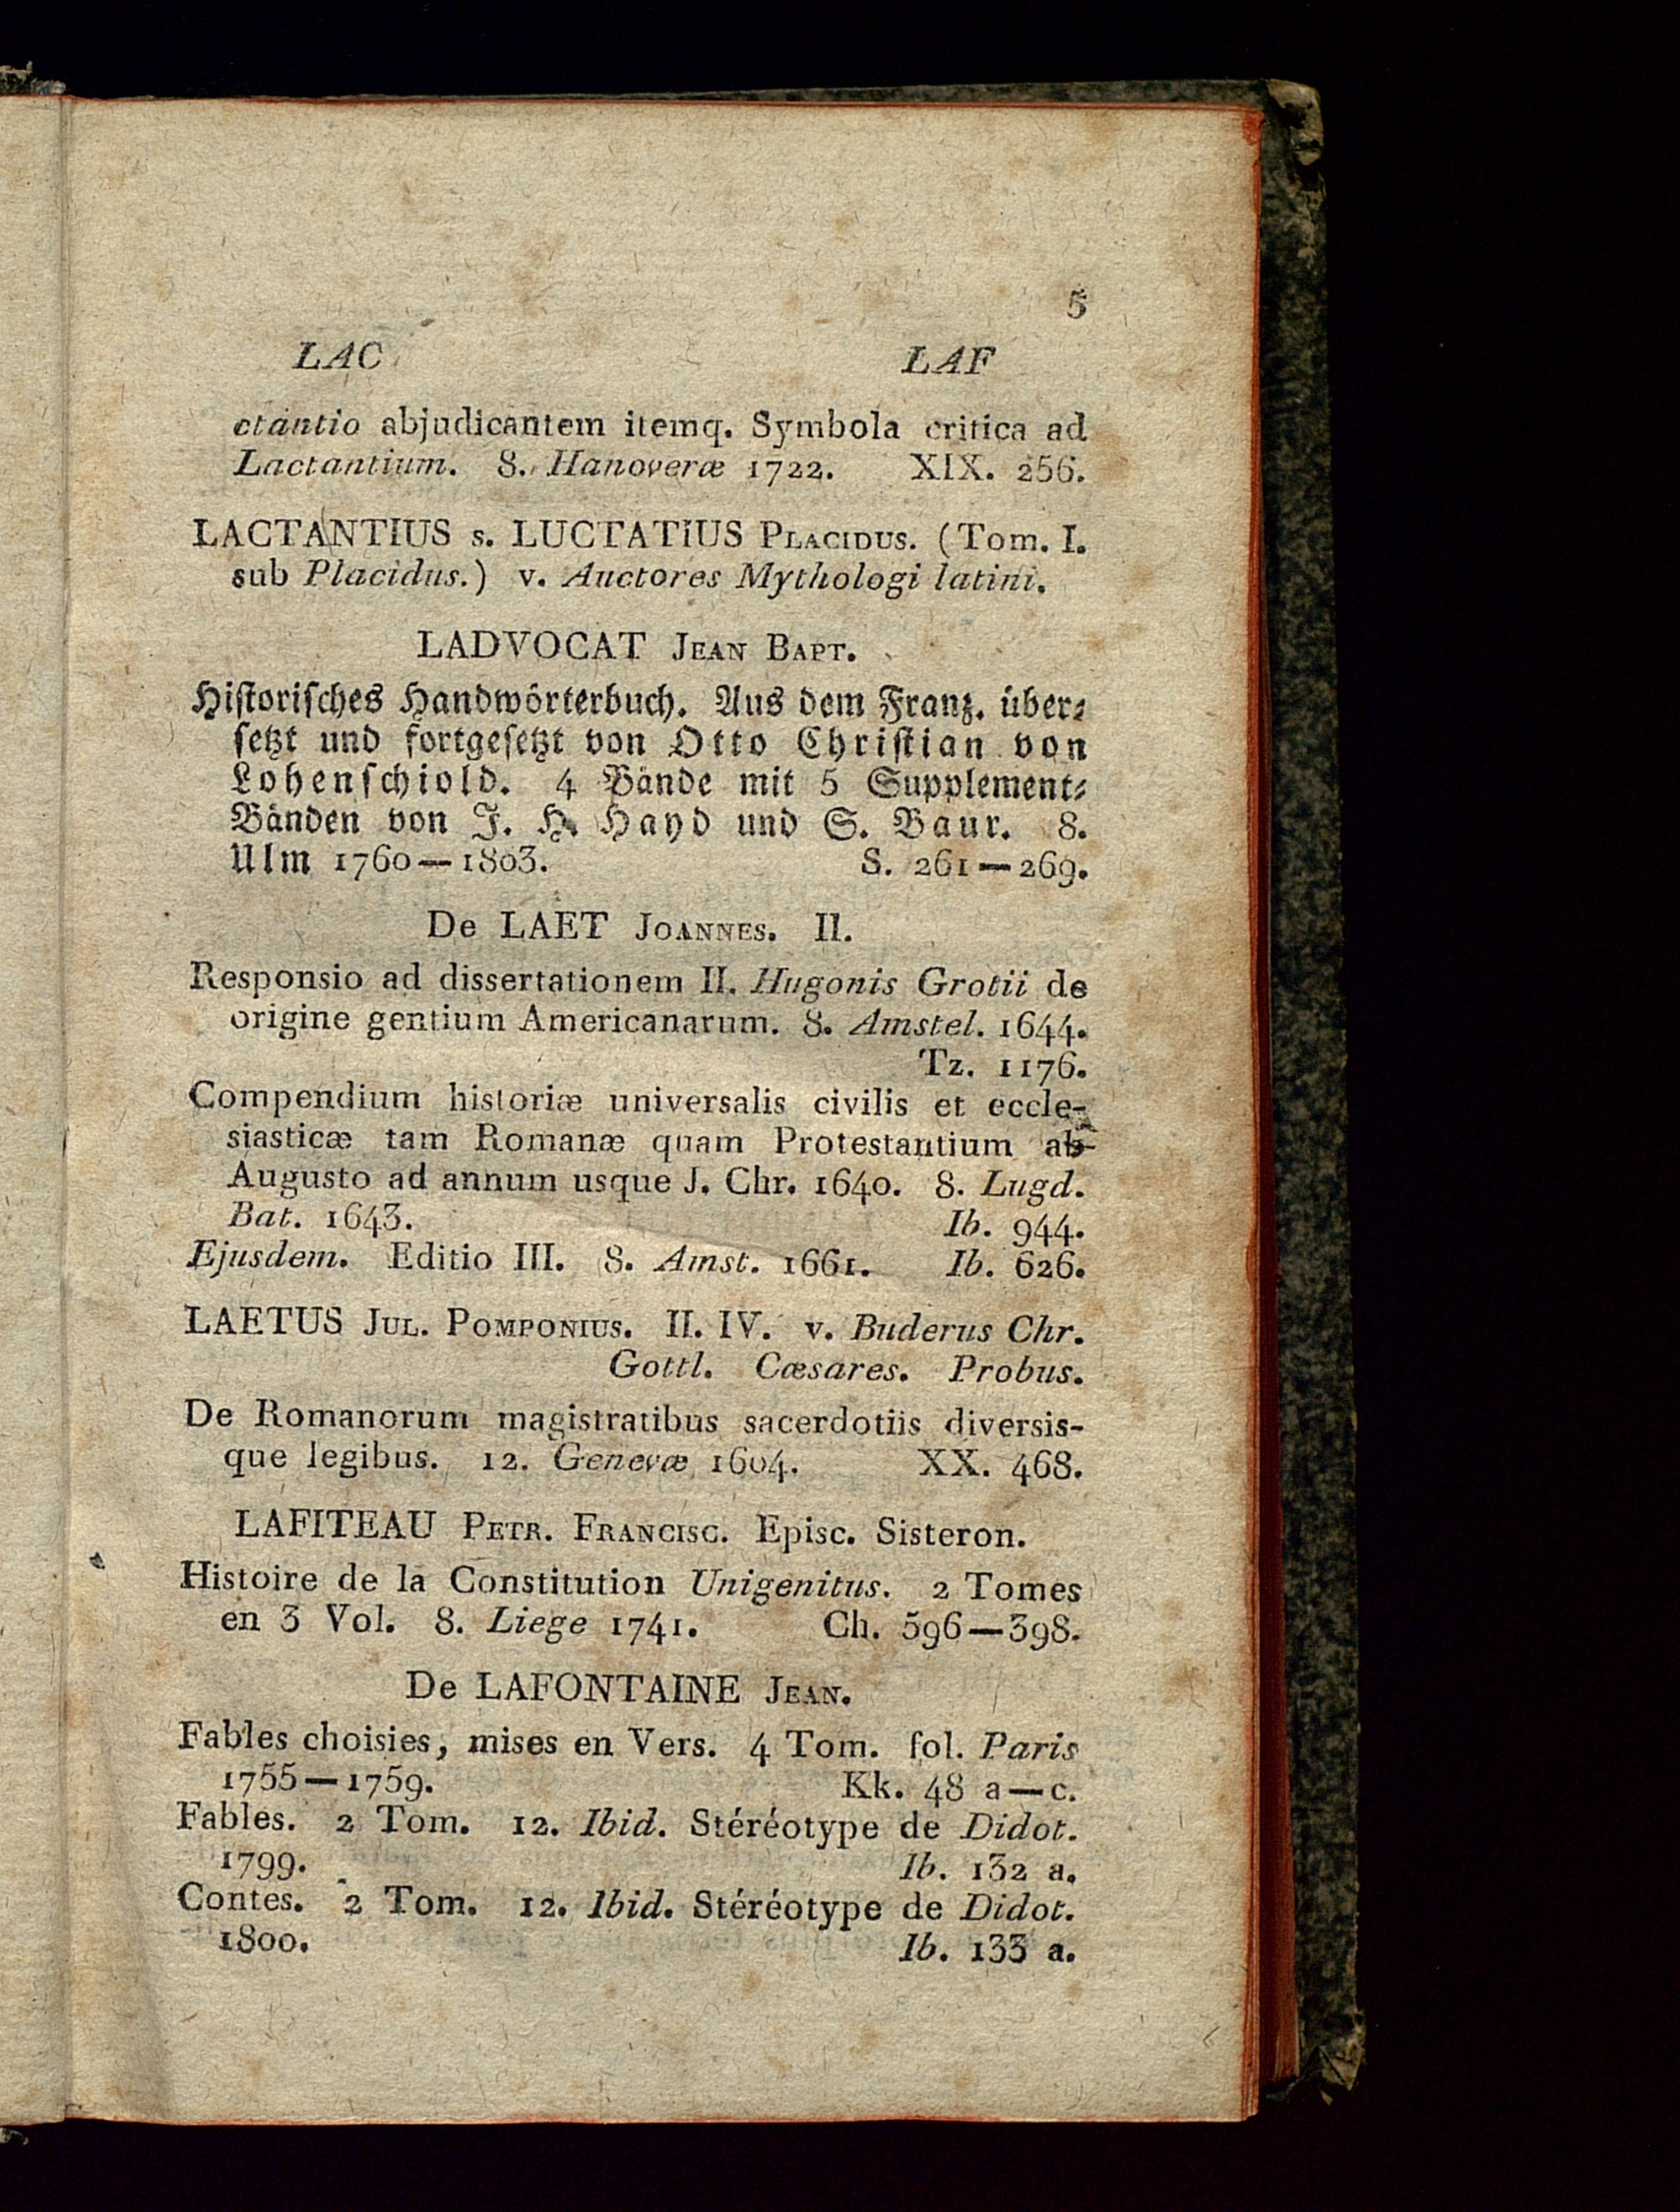 5
LAC LAF
ctantio abjudicantem itemq. Symbola critica ad
Lactantium. 8. Hanoveræ 1722. XIX. 256.
LACTANTIUS s. LUCTATIUS PLACIDUS. (Tom. I.
sub Placidus.) v. Auctores Mythologi latini.
LADVOCAT JEAN BAPT.
Historisches Handwörterbuch. Aus dem Franz. über-
setzt und fortgesetzt von Otto Christian von
Lohenschiold. 4 Bände mit 5 Supplement-
Bänden von J. H. Hayd und S. Baur. 8.
Ulm 1760—1803. S. 261—269.
De LAET JOANNES. II.
Responsio ad dissertationem II. Hugonis Grotii de
origine gentium Americanarum. 8. Amstel. 1644.
Tz. 1176.
Compendium historiæ universalis civilis et eccle-
siasticæ tam Romanæ quam Protestantium ab
Augusto ad annum usque J. Chr. 1640. 8. Lugd.
Bat. 1643. Ib. 944.
Ejusdem. Editio III. 8. Amst. 1661. Ib. 626.
LAETUS JUL. POMPONIUS. II. IV. v. Buderus Chr.
Gottl. Cæsares. Probus.
De Romanorum magistratibus sacerdotiis diversis-
que legibus. 12. Genevæ 1604. XX. 468.
LAFITEAU PETR. FRANCISC. Episc. Sisteron.
Histoire de la Constitution Unigenitus. 2 Tomes
en 3 Vol. 8. Liege 1741. Ch. 596—398.
De LAFONTAINE JEAN.
Fables choisies, mises en Vers. 4 Tom. fol. Paris
1755—1759. Kk. 48 a—c.
Fables. 2 Tom. 12. Ibid. Stéréotype de Didot.
1799. Ib. 132 a.
Contes. 2 Tom. 12. Ibid. Stéréotype de Didot.
1800. Ib. 133 a.